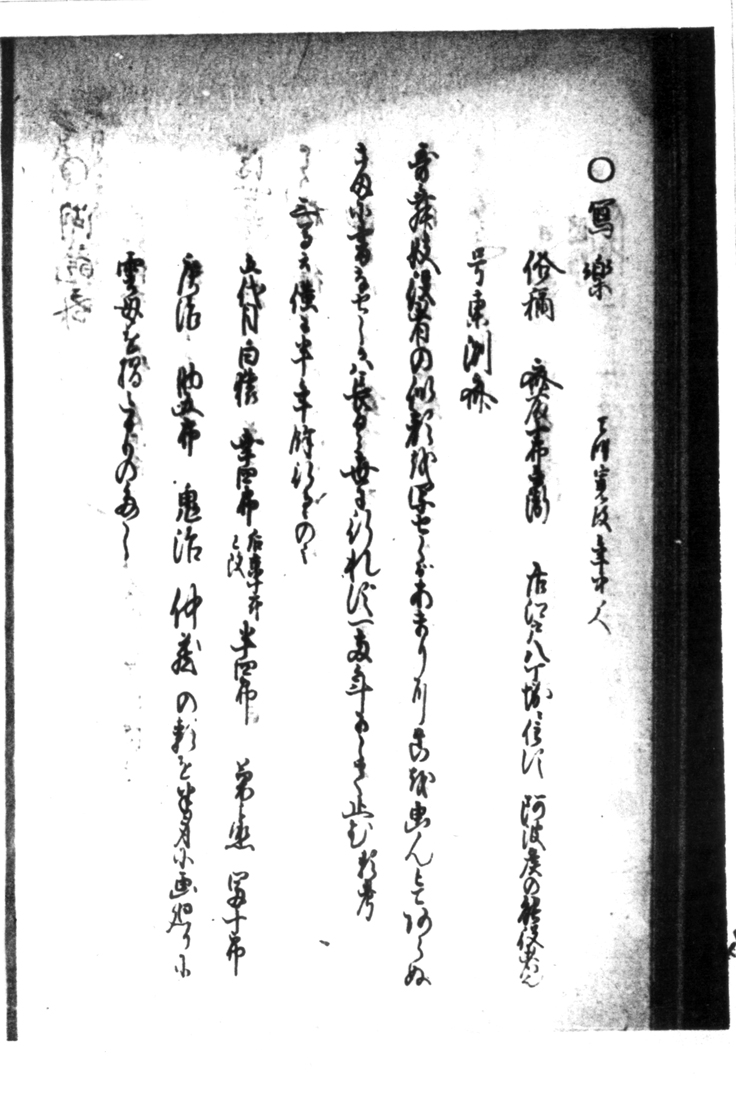 ○寫樂 天明寛政年中人
俗稱 斎藤十郎兵衛 居江戸八丁堀に住す 阿波侯の能役者也
号東洲斎
歌舞妓役者の似顔を写せしがあまりに真を画かんとてあらぬ
さまに書なせしかば長く世に行れず一両年にして止む 類考
三馬云僅に半年餘行るゝのミ
五代目白猿 幸四郎 後京十郎と改 半四郎 菊之丞 富十郎
廣治 助五郎 鬼治 仲蔵の類を半身に画廻りに
雲母を摺たるもの多し